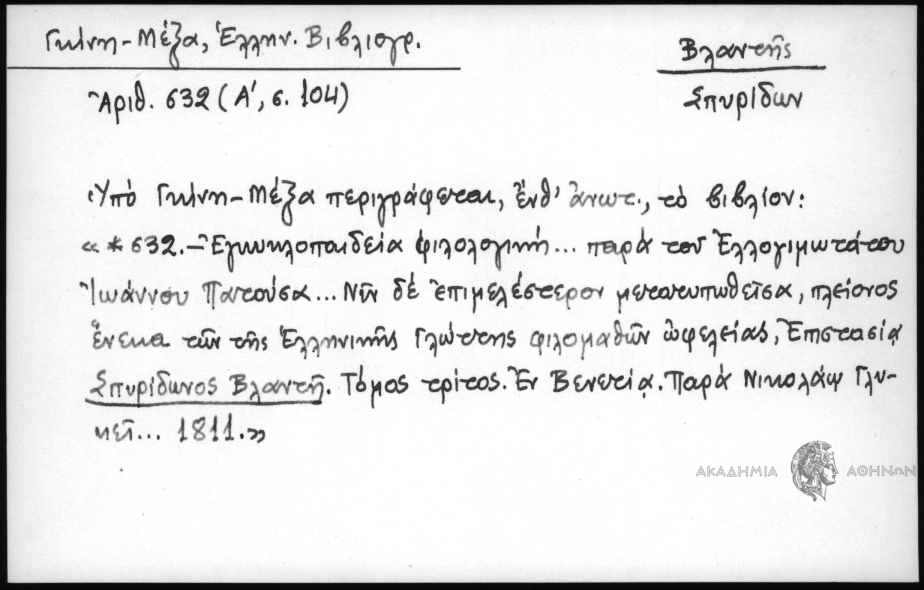 Γκίνη-Μέξα, Ἑλλην. Βιβλιογρ.
Βλαντῆς
Ἀριθ. 632 (Α', σ. 104)
Σπυρίδων
Ὑπὸ Γκίνη-Μέξα περιγράφεται, ἔνθ' ἀνωτ., τὸ βιβλίον:
«*632.-Ἐγκυκλοπαιδεία φιλολογική... παρὰ τοῦ Ἐλλογιμωτάτου
Ἰωάννου Πατούσα... Νῦν δὲ ἐπιμελέστερον μετατυπωθεῖσα, πλείονος
ἕνεκα τῶν τῆς Ἑλληνικῆς Γλώττης φιλομαθῶν ὠφελείας, Ἐπιστασίᾳ
Σπυρίδωνος Βλαντῆ. Τόμος τρίτος. Ἐν Βενετίᾳ. Παρὰ Νικολάῳ Γλυ-
κεῖ... 1811.»
ΑΚΑΔΗΜΙΑ ΑΘΗΝΩΝ